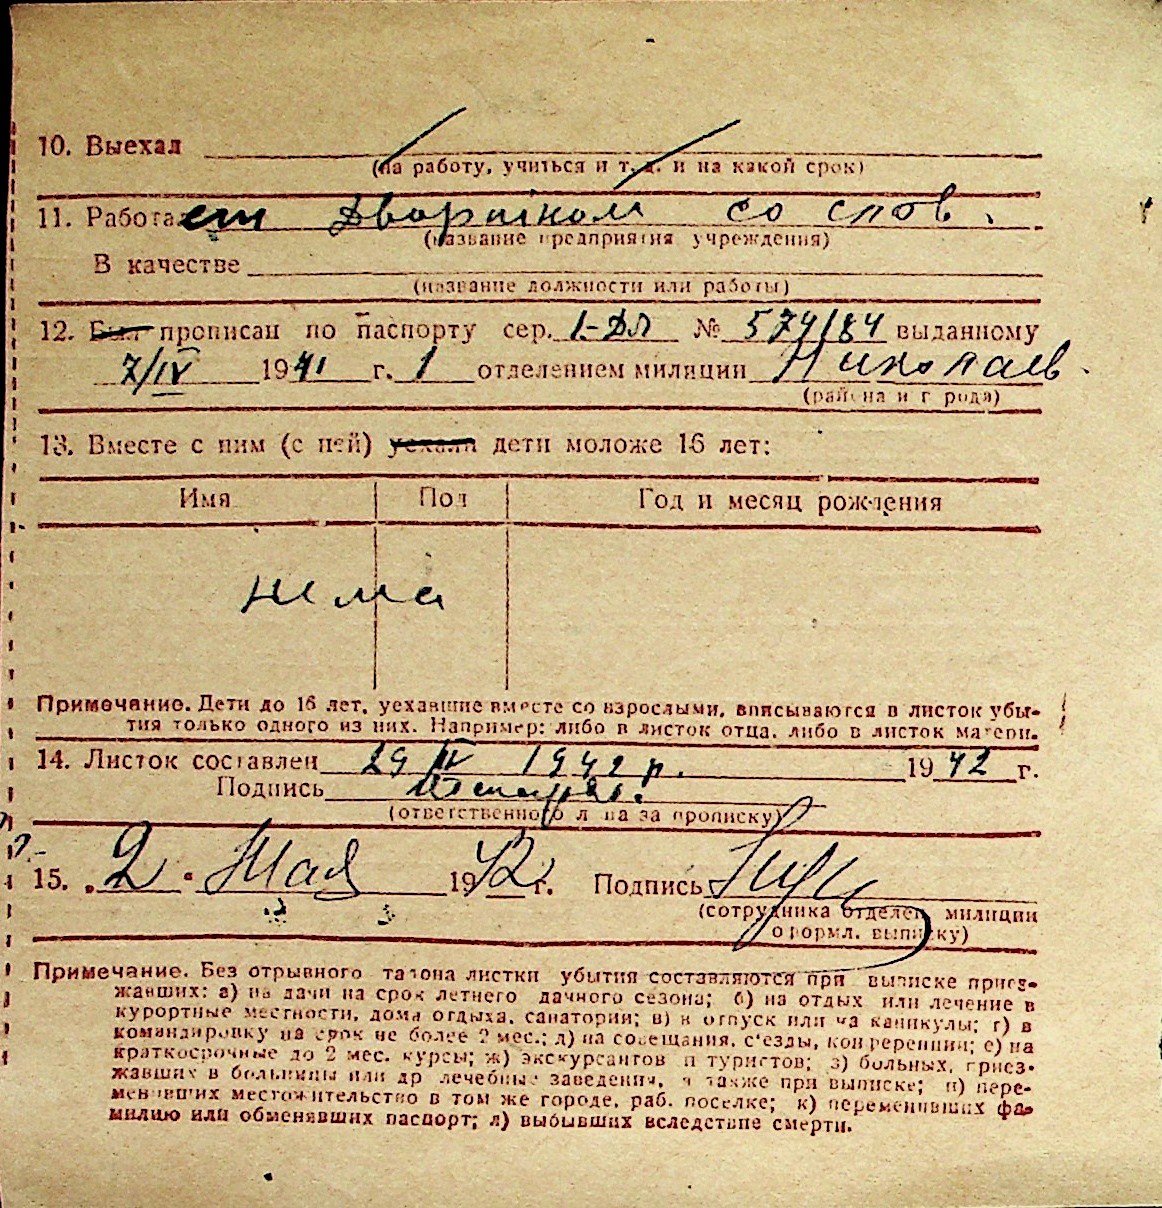 10. Выехал
(на работу, учиться и т. д. и на какой срок)
11. Работает Дворником со слов.
(название предприятия учреждения)
В качестве
(название должности или работы)
12. Был прописан по паспорту сер. 1-ДЛ № 574184 выданному
7/IV 1941 г. 1 отделением милиции Николаев.
(района и города)
13. Вместе с ним (с ней) уехали дети моложе 16 лет:
Имя Пол Год и месяц рождения
нема
Примечание. Дети до 16 лет, уехавшие вместе со взрослыми, вписываются в листок убы-
тия только одного из них. Например: либо в листок отца, либо в листок матери.
14. Листок составлен 29 IV 1942 р. 1942 г.
Подпись
(ответственного лица за прописку)
15. „2" Мая 1942 г. Подпись
(сотрудника отделен. милиции
оформл. выписку)
Примечание. Без отрывного талона листки убытия составляются при выписке приез-
жавших: а) на дачи на срок летнего дачного сезона; б) на отдых или лечение в
курортные местности, дома отдыха, санатории; в) в отпуск или на каникулы; г) в
командировку на срок не более 2 мес.; д) на совещания, съезды, конференции; е) на
краткосрочные до 2 мес. курсы; ж) экскурсантов и туристов; з) больных, приез-
жавших в больницы или др лечебные заведения, а также при выписке; и) пере-
менивших местожительство в том же городе, раб. поселке; к) переменивших фа-
милию или обменявших паспорт; л) выбывших вследствие смерти.